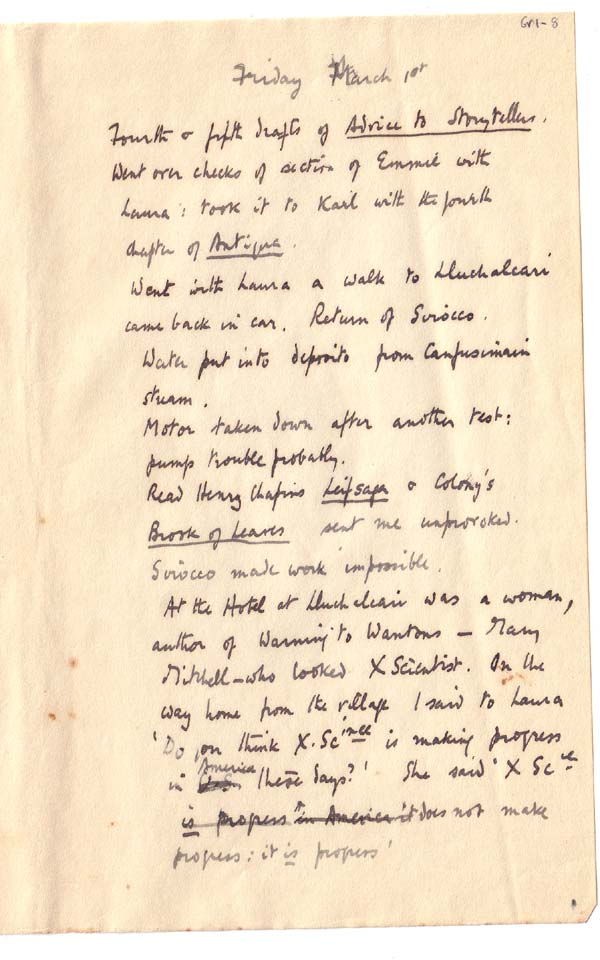 GM-8
Friday March 1st
Fourth & fifth drafts of Advice to Storytellers.
Went over checks of section of Emmie with
Laura: took it to Karl with the fourth
chapter of Antigua.
Went with Laura a walk to Lluchalcari
came back in car. Return of Sirocco.
Water put into deposito from Canfusimain
stream.
Motor taken down after another test:
pump trouble probably.
Read Henry Chapins Leifsaga & Colony's
Brook of Leaves sent me unprovoked.
Sirocco made work impossible.
At the Hotel at Lluchalcari was a woman,
author of Warning to Wantons – Mary
Mitchell – who looked X Scientist. On the
way home from the village I said to Laura
'Do you think X. Science is making progress
in America these days?' She said 'X Sce
is progress in America it does not make
progress: it is progress'